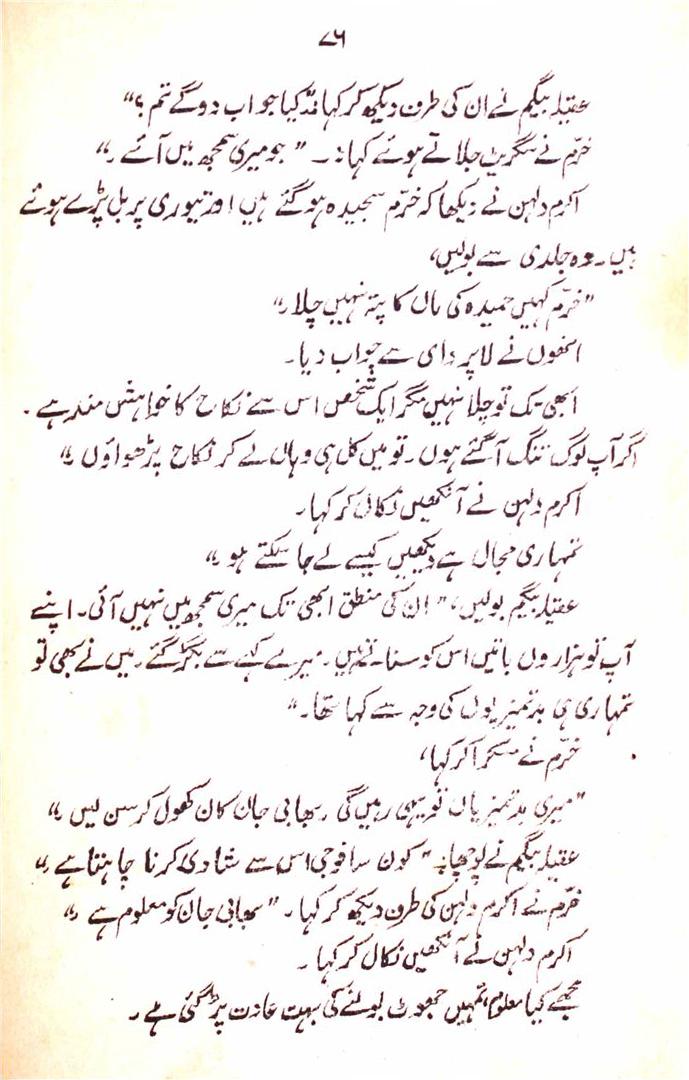 ۷۶
عقیلہ بیگم نے ان کی طرف دیکھ کر کہا: "کیا جواب دو گے تم؟"
خرّم نے سگریٹ جلاتے ہوئے کہا: ـ "جو میری سمجھ میں آئے۔"
اکرم دلہن نے دیکھا کہ خرّم سنجیدہ ہو گئے ہیں اور تیوری پر بل پڑے ہوئے
ہیں۔ وہ جلدی سے بولیں،
"خرّم کہیں حمیدہ کی ماں کا پتہ نہیں چلا۔"
انھوں نے لاپروائی سے جواب دیا۔
ابھی تک تو چلا نہیں مگر ایک شخص اس سے نکاح کا خواہش مند ہے۔
اگر آپ لوگ تنگ آ گئے ہوں۔ تو میں کل ہی وہاں لے کر نکاح پڑھوا دوں۔"
اکرم دلہن نے آنکھیں نکال کر کہا۔
تمہاری مجال ہے دیکھیں کیسے لے جا سکتے ہو۔"
عقیلہ بیگم بولیں، "ان کی منطق ابھی تک میری سمجھ میں نہیں آئی۔ اپنے
آپ تو ہزاروں باتیں اس کو سناتے ہیں۔ میرے کہے سے بگڑ گئے۔ میں نے بھی تو
تمہاری ہی بدتمیزیوں کی وجہ سے کہا تھا۔"
خرّم نے مسکرا کر کہا،
"میری بدتمیزیاں تو یہی رہیں گی۔ بھابی جان کان کھول کر سن لیں۔"
عقیلہ بیگم نے پوچھا: "کون سا فوجی اس سے شادی کرنا چاہتا ہے۔"
خرّم نے اکرم دلہن کی طرف دیکھ کر کہا۔ "بھابی جان کو معلوم ہے۔"
اکرم دلہن نے آنکھیں نکال کر کہا۔
مجھے کیا معلوم، تمہیں جھوٹ بولنے کی بہت عادت پڑ گئی ہے۔